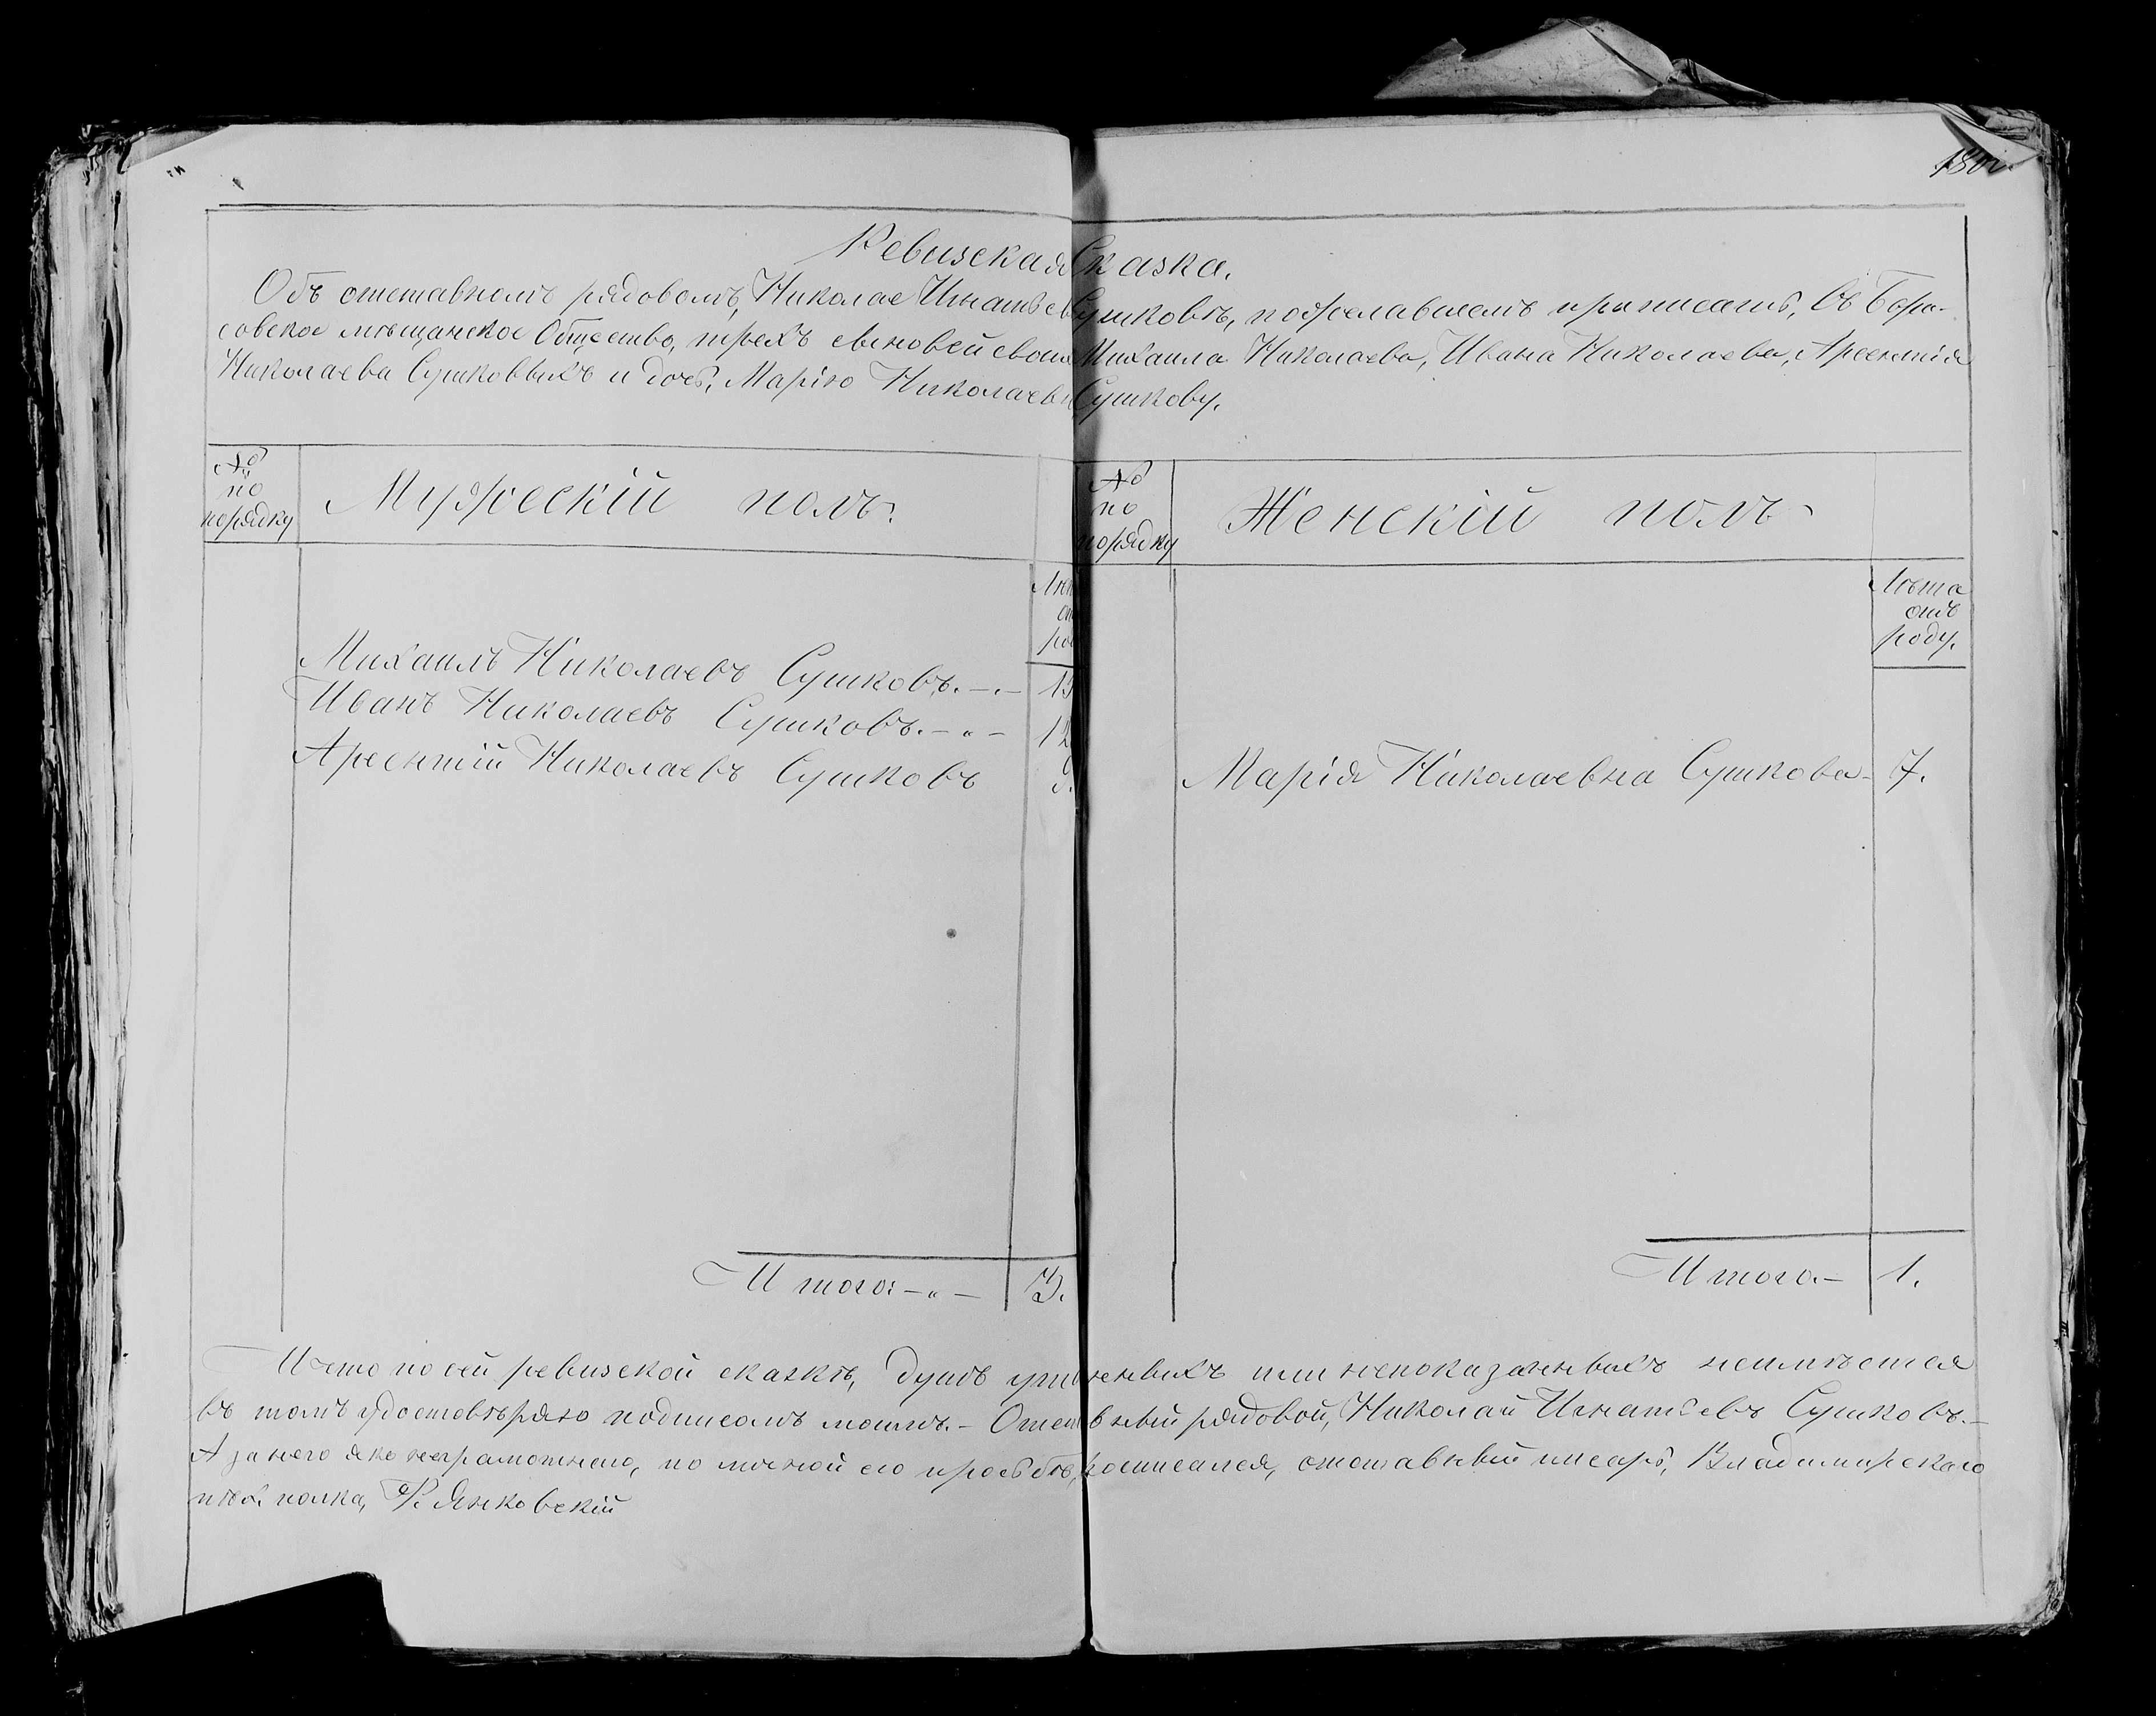 Ревизская Сказка.
Объ отставномъ рядовомъ, Николае Игнатьев Сушковѣ, пожелавшемъ приписать, въ Бори-
совское мѣщанское Общество, трехъ сыновей своих Михаила Николаева, Ивана Николаева, Арсентія
Николаева Сушковыхъ и дочь, Марію Николаевн Сушкову.
№
по
порядку
Мужескій полъ.
№
по
порядку
Женскій полъ
Лѣта
отъ
роду.
Михаилъ Николаевъ Сушковъ. 
Иванъ Николаевъ Сушковъ. - " - 12
Арсентій Николаевъ Сушковъ
Марія Николаевна Сушкова - 7.
Итого: - " - 3.
Итого. - 1.
И что по сей ревизской сказкѣ, душъ утаенныхъ или непоказанныхъ неимѣется
въ томъ удостовѣряю подписомъ моимъ. - Отставный рядовой, Николай Игнатьевъ Сушковъ. -
А за него яко неграмотнаго, по личной его просьбѣ, росписался, отставный писарь, Владимирскаго
пѣх. полка, Янковскій